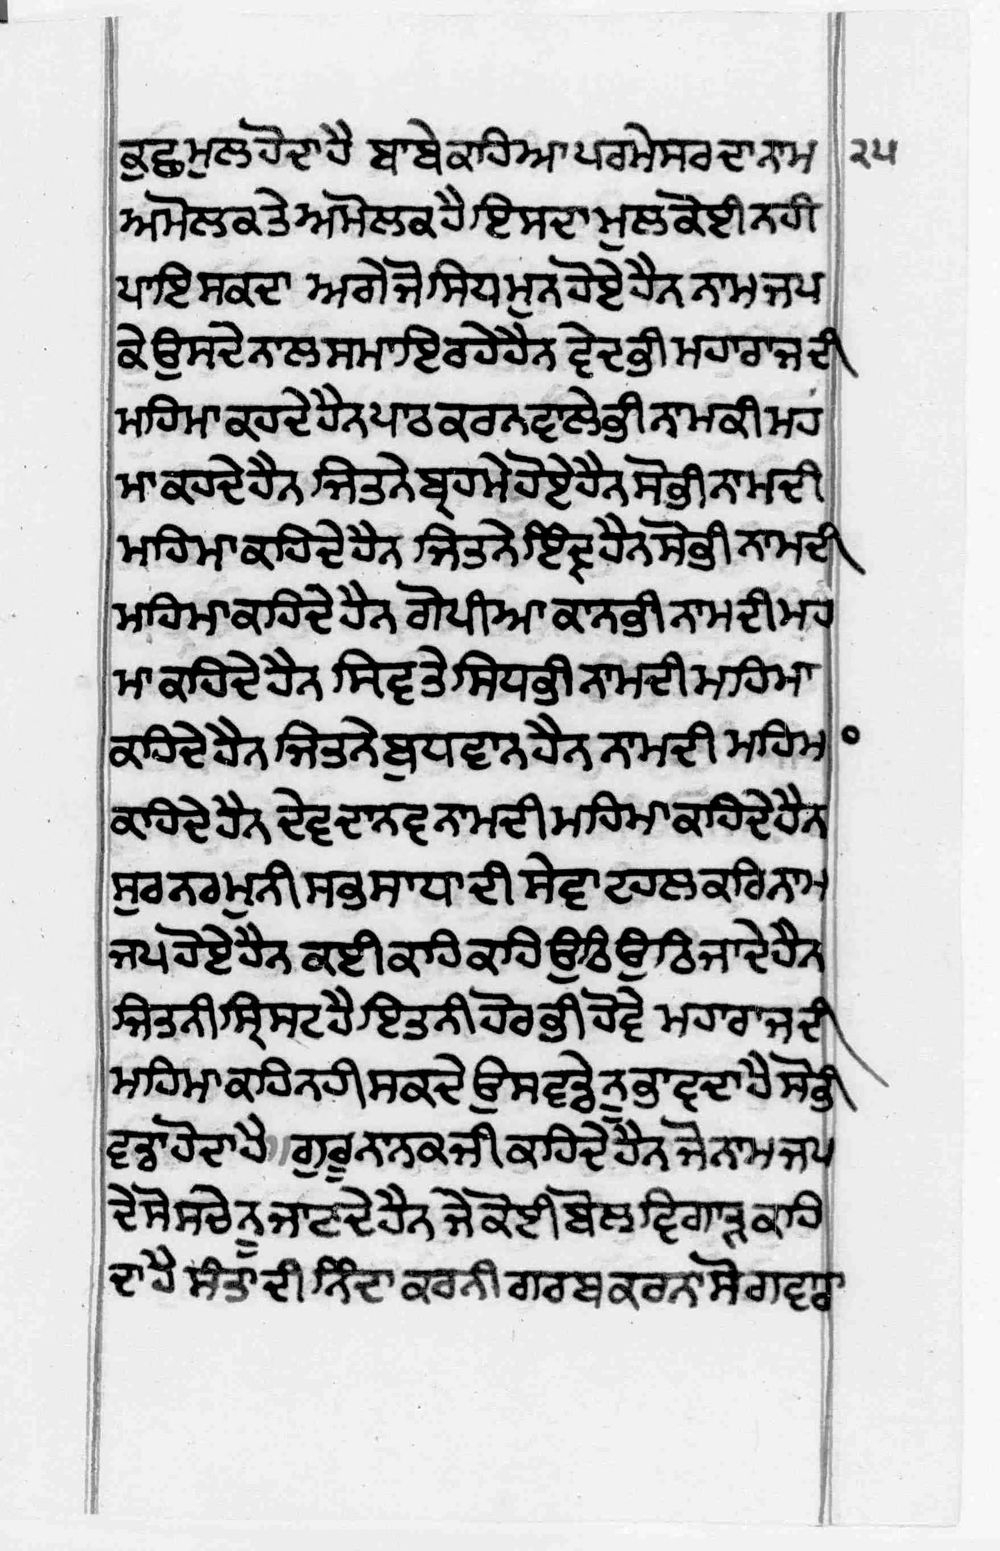 ਕੁਛੁ ਮੁਲ ਹੋਦਾ ਹੈ ਬਾਬੇ ਕਹਿਆ ਪਰਮੇਸਰ ਦਾ ਨਾਮ ੨੫
ਅਮੋਲਕ ਤੇ ਅਮੋਲਕ ਹੈ ਇਸਦਾ ਮੁਲ ਕੋਈ ਨਹੀ
ਪਾਇ ਸਕਦਾ ਅਗੇ ਜੋ ਸਿਧ ਮੁਨ ਹੋਏ ਹੈਨ ਨਾਮ ਜਪ
ਕੇ ਉਸਦੇ ਨਾਲ ਸਮਾਇ ਰਹੇ ਹੈਨ ਵੇਦ ਭੀ ਮਹਾਰਾਜ ਦੀ
ਮਹਿਮਾ ਕਹਦੇ ਹੈਨ ਪਾਠ ਕਰਨ ਵਾਲੇ ਭੀ ਨਾਮ ਕੀ ਮਹ
ਮਾ ਕਹਦੇ ਹੈਨ ਜਿਤਨੇ ਬ੍ਰਹਮੇ ਹੋਏ ਹੈਨ ਸੋ ਭੀ ਨਾਮ ਦੀ
ਮਹਿਮਾ ਕਹਿਦੇ ਹੈਨ ਜਿਤਨੇ ਇੰਦ੍ਰ ਹੈਨ ਸੋ ਭੀ ਨਾਮ ਦੀ
ਮਹਿਮਾ ਕਹਿਦੇ ਹੈਨ ਗੋਪੀਆ ਕਾਨ ਭੀ ਨਾਮ ਦੀ ਮਹ
ਮਾ ਕਹਿਦੇ ਹੈਨ ਸਿਵ ਤੇ ਸਿਧ ਭੀ ਨਾਮ ਦੀ ਮਹਿਮਾ
ਕਹਿਦੇ ਹੈਨ ਜਿਤਨੇ ਬੁਧਵਾਨ ਹੈਨ ਨਾਮ ਦੀ ਮਹਿਮ
ਕਹਿਦੇ ਹੈਨ ਦੇਵ ਦਾਨਵ ਨਾਮ ਦੀ ਮਹਿਮਾ ਕਹਿਦੇ ਹੈਨ
ਸੁਰ ਨਰ ਮੁਨੀ ਸਭ ਸਾਧਾ ਦੀ ਸੇਵਾ ਟਹਲ ਕਰਿ ਨਾਮ
ਜਪ ਹੋਏ ਹੈਨ ਕਈ ਕਹਿ ਕਹਿ ਉਠਿ ਉਠਿ ਜਾਦੇ ਹੈਨ
ਜਿਤਨੀ ਸ੍ਰਿਸਟ ਹੈ ਇਤਨੀ ਹੋਰ ਭੀ ਹੋਵੇ ਮਹਾਰਾਜ ਦੀ
ਮਹਿਮਾ ਕਹਿ ਨਹੀ ਸਕਦੇ ਉਸ ਵਡੇ ਨੂ ਭਾਵਦਾ ਹੈ ਸੋ ਭੀ
ਵਡਾ ਹੋਦਾ ਹੈ ਗੁਰੂ ਨਾਨਕ ਜੀ ਕਹਿਦੇ ਹੈਨ ਜੋ ਨਾਮ ਜਪ
ਦੇ ਸੋ ਸਚੇ ਨੂ ਜਾਣਦੇ ਹੈਨ ਜੇ ਕੋਈ ਬੋਲ ਵਿਗਾੜ ਕਹਿ
ਦਾ ਹੈ ਸੰਤਾ ਦੀ ਨਿੰਦਾ ਕਰਨੀ ਗਰਬ ਕਰਨਾ ਸੋ ਗਵਾਰਾ